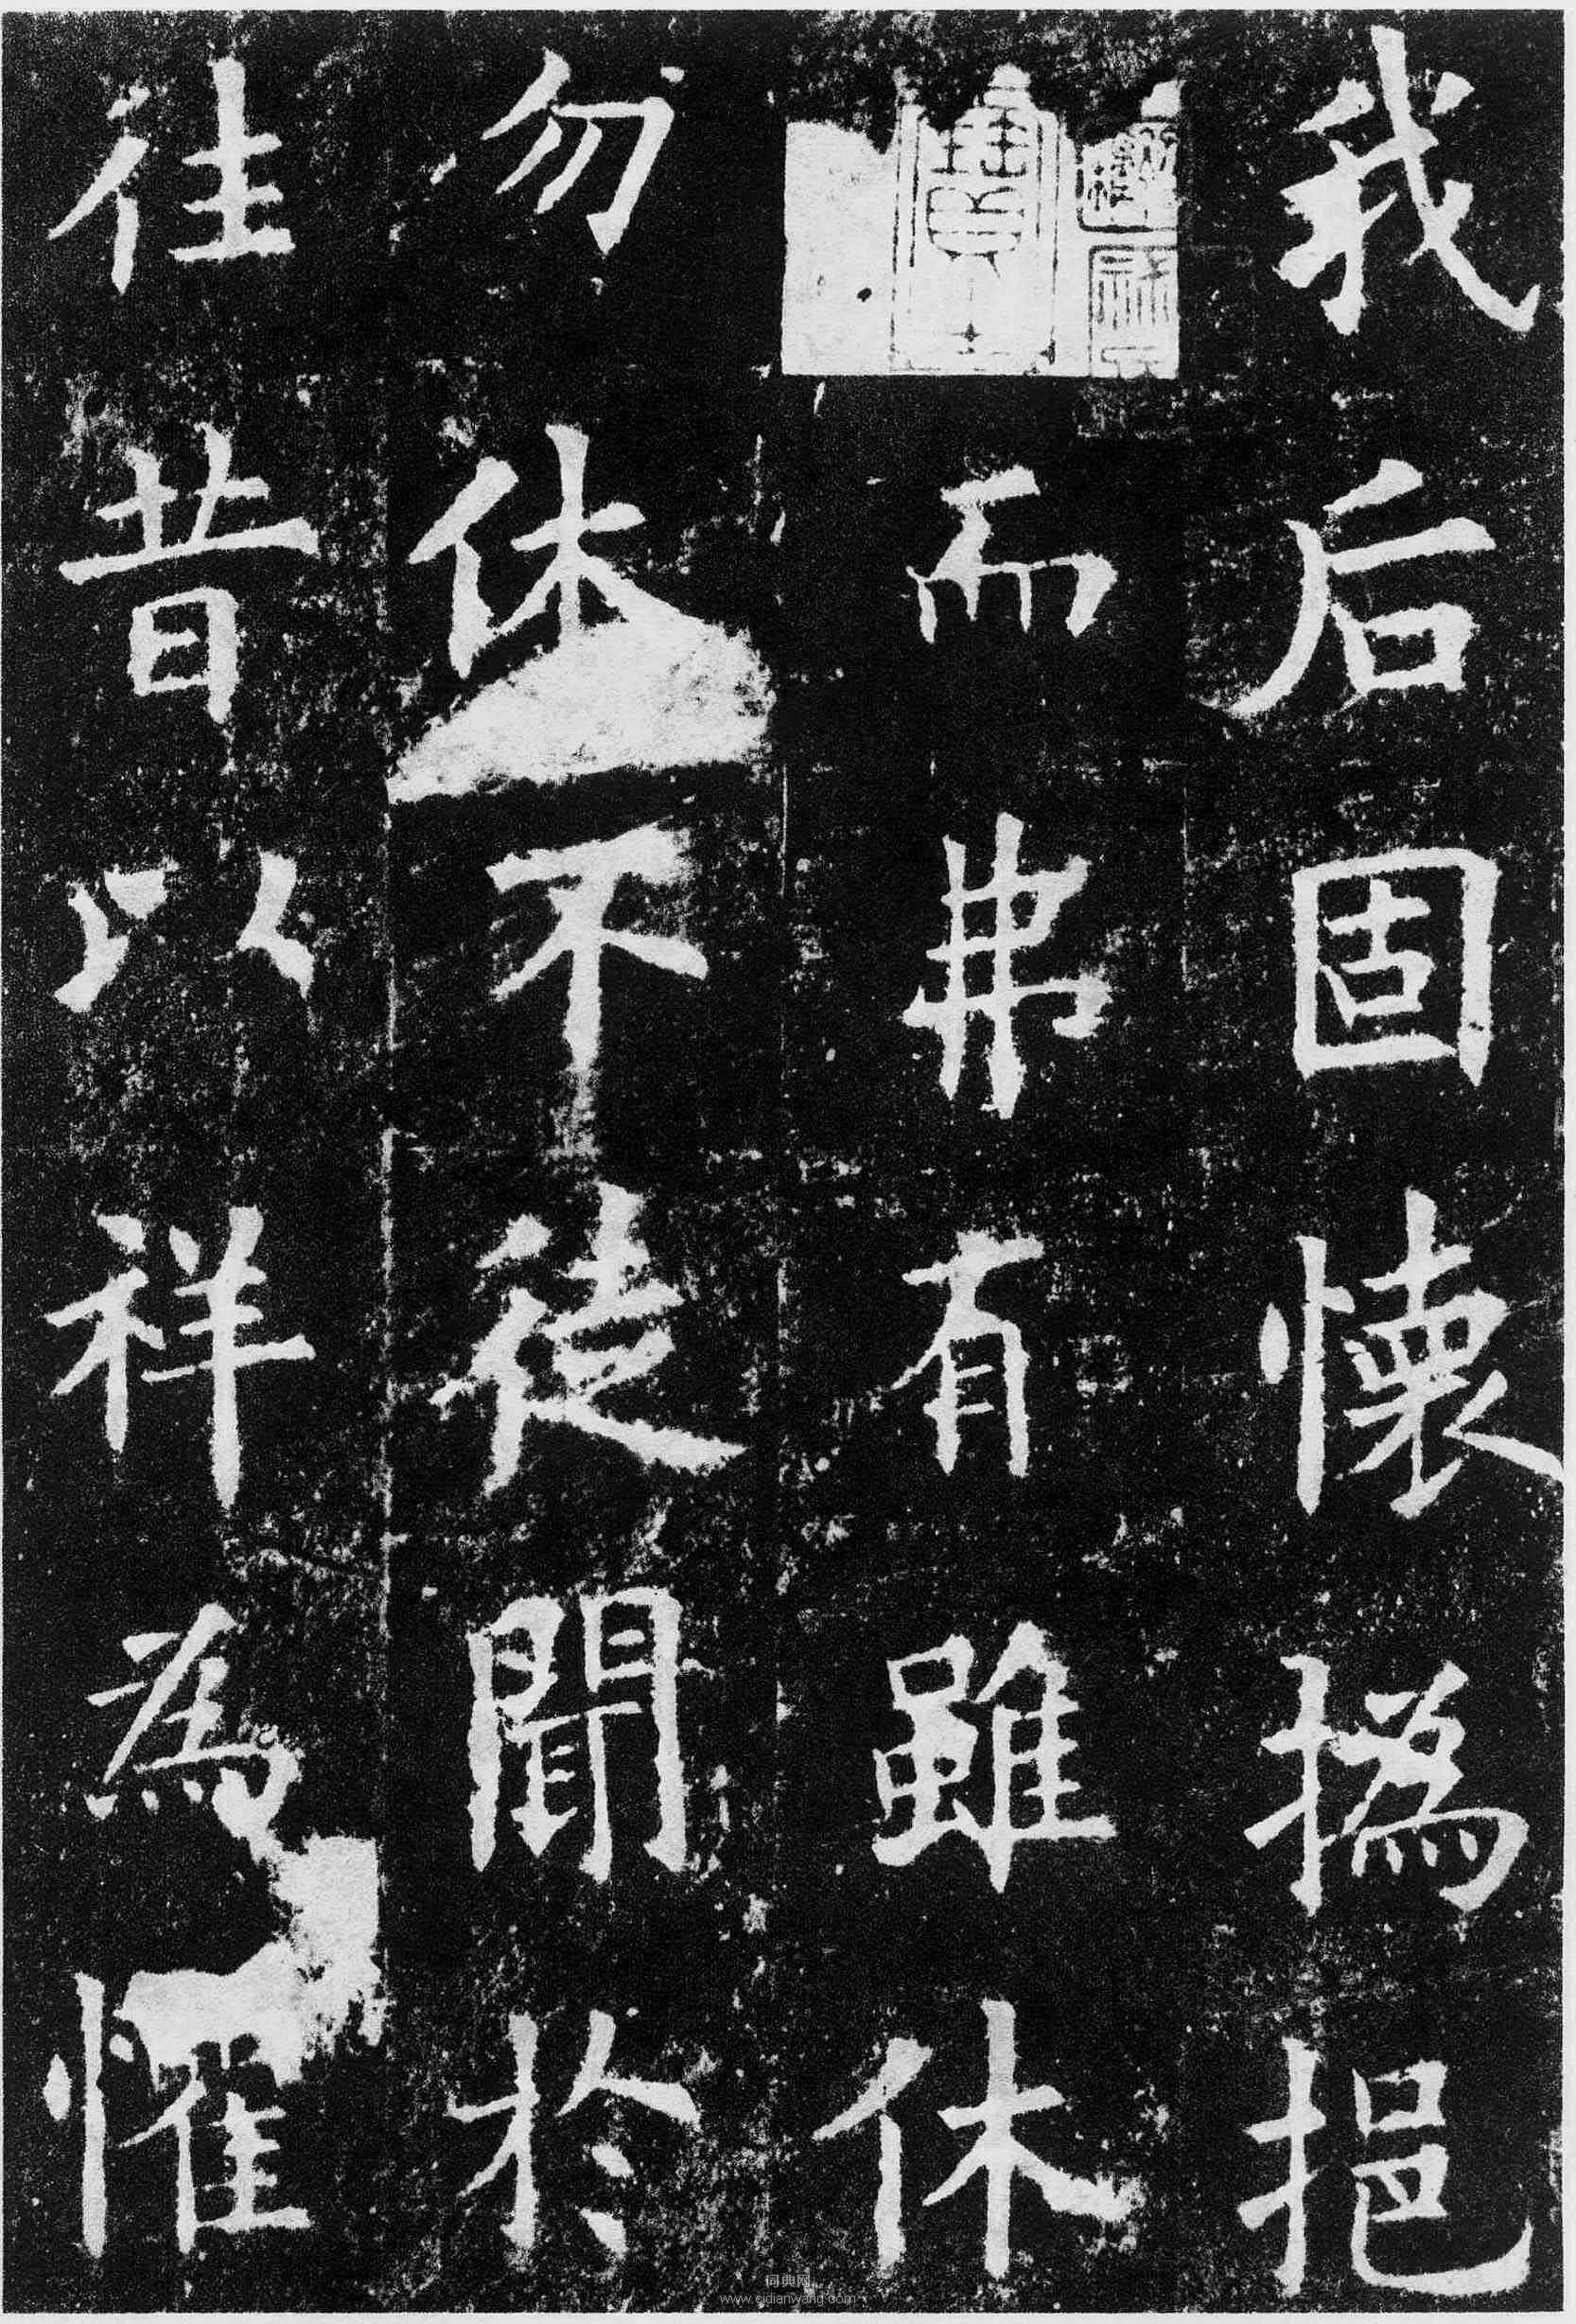 我后固懷撝挹
而弗有雖休
勿休不徒聞於
往昔以祥為懼
词典网
www.cidianwang.com